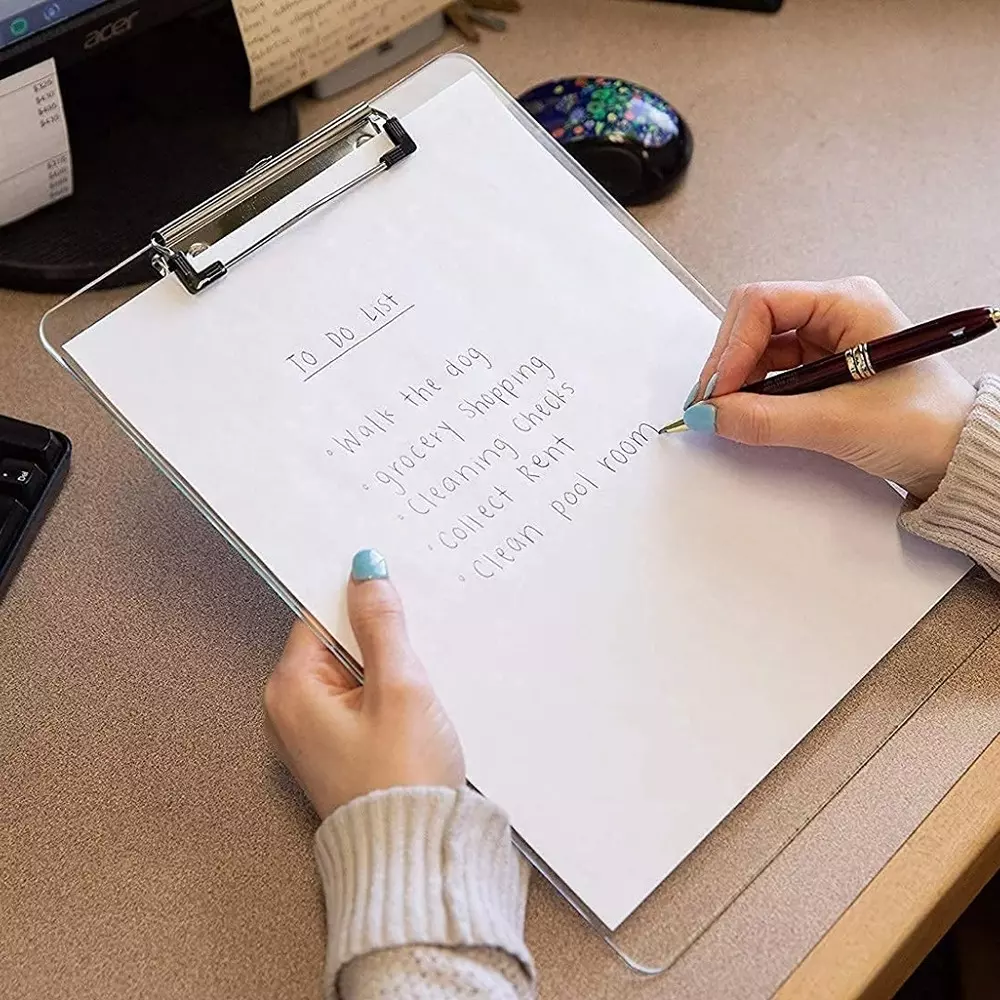 acer
$325
$430
$400
$430
To Do List
• Walk the dog
• grocery shopping
• Cleaning Checks
• Collect Rent
• Clean pool room